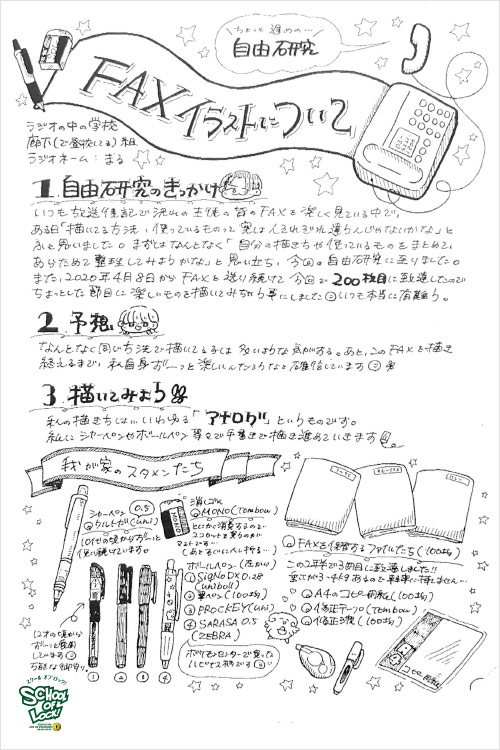 ちょっと進めの…
自由研究
FAXイラストについて
ラジオの中の学校
廊下(で登校してる)組
ラジオネーム:まる
1 自由研究のきっかけ
いつも放送後記で流れの生徒の皆のFAXを楽しく見ている中で、
ある日「描いてる方法、使っているものって実は人それぞれ違うんじゃないかな」と
ふと思いました。まずはなんとなく「自分の描き方や使っているものをまとめて、
あらためて整理してみようかな」と思い立ち、今回の自由研究に至りました。
また、2020年4月8日からFAXを送り続けて今回で200枚目に到達したので
ちょっとした節目に楽しいものを描いてみちゃう事にしました いつも本当に有難う。
2 予想
なんとなく同じ方法で描いてる子は多いような気がする。あと、このFAXを描き
終えるまで、私自身がずーっと楽しいんだろうなと確信しています
3 描いてみよう
私の描き方は…いわゆる「アナログ」というものです。
紙にシャーペンやボールペン等々で手書きで描き進めていきます
我が家のスタメンたち
シャーペン 0.5
クルトガ(uni)
10代の頃からずーっと
使い続けています。
消しゴム
MONO(Tombow)
とにかく消費するので
ストックしてます…
ボールペン(左から)
① SigNo DX 0.28
(uniball)
② 筆ペン(100均)
③ PROCKEY(uni)
④ SARASA 0.5
(ZEBRA)
① ② ③ ④
FAXを保管するファイルたち(100均)
この2年半で3冊目に到達しました!!
A4のコピー用紙(100均)
修正テープ(Tombow)
修正液(100均)
コピー用紙
スクールオブロック!
SCHOOL OF LOCK!